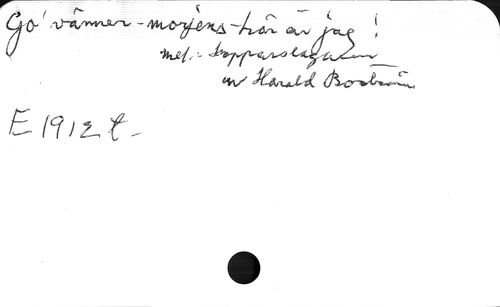 Go' vänner - morjens - här är jag!
mel.: Kopparslagaren
av Harald Boström
E 1912 t -